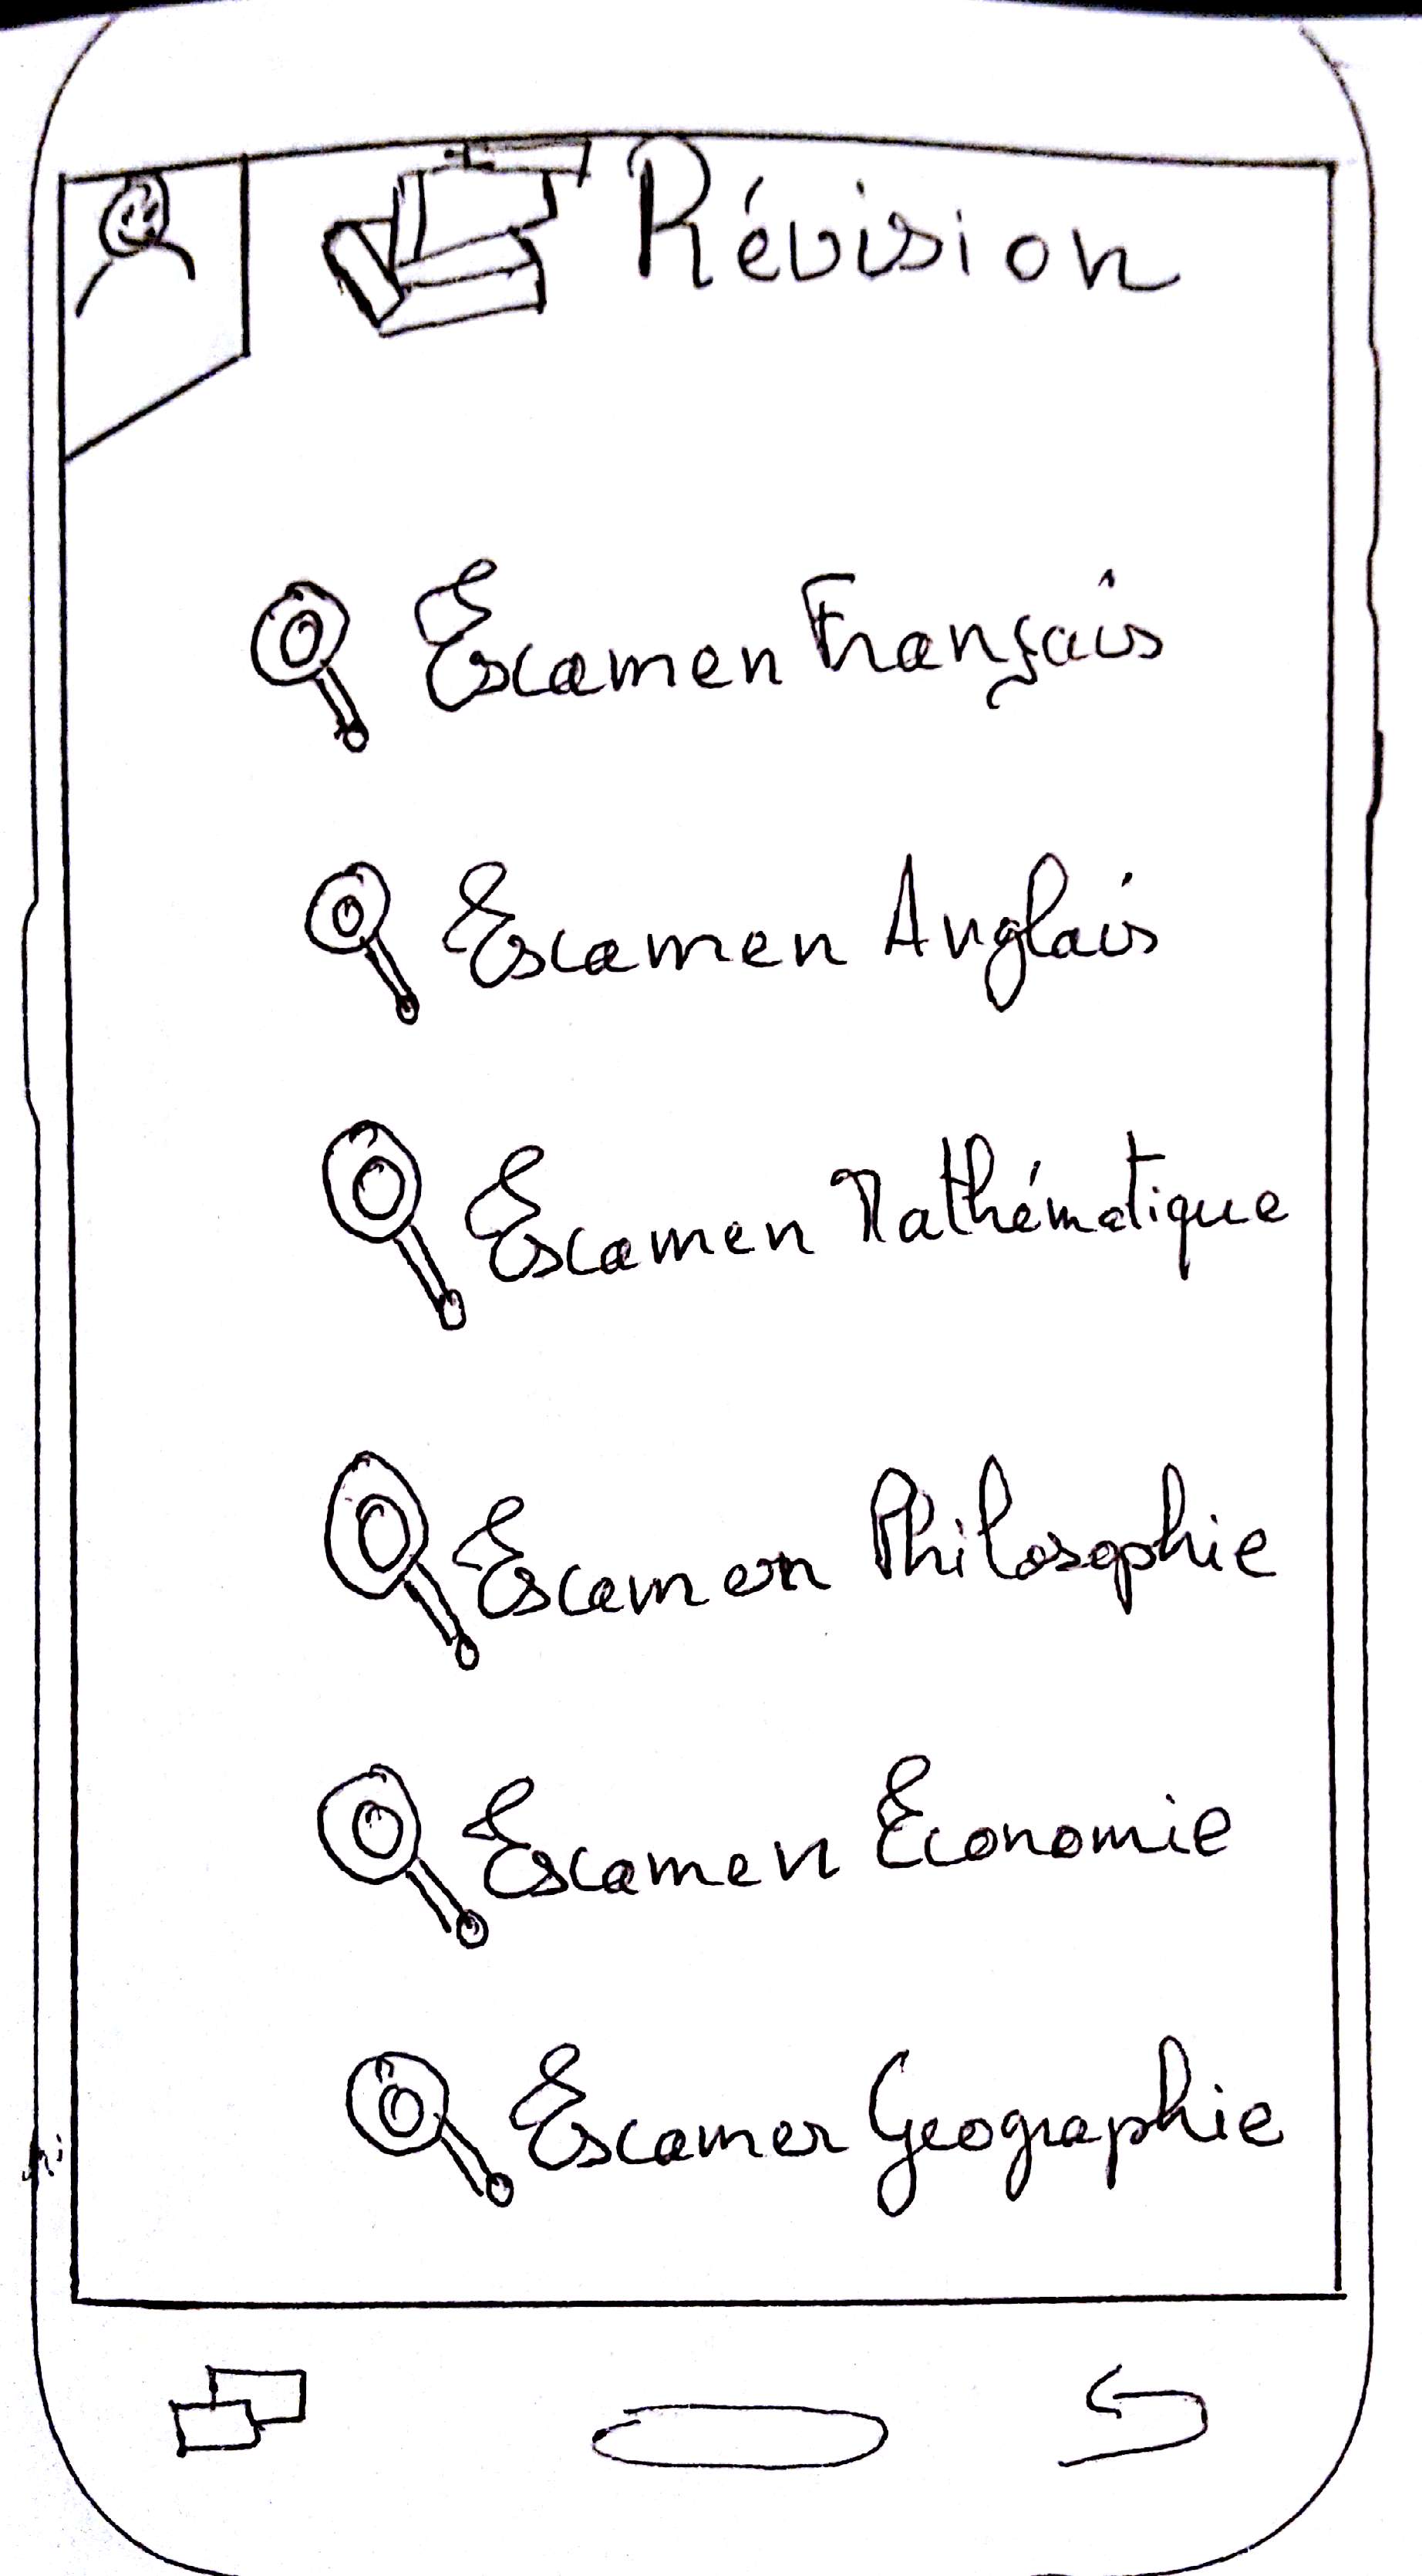 Révision
Examen Français
Examen Anglais
Examen Mathématique
Examen Philosophie
Examen Économie
Examen Geographie